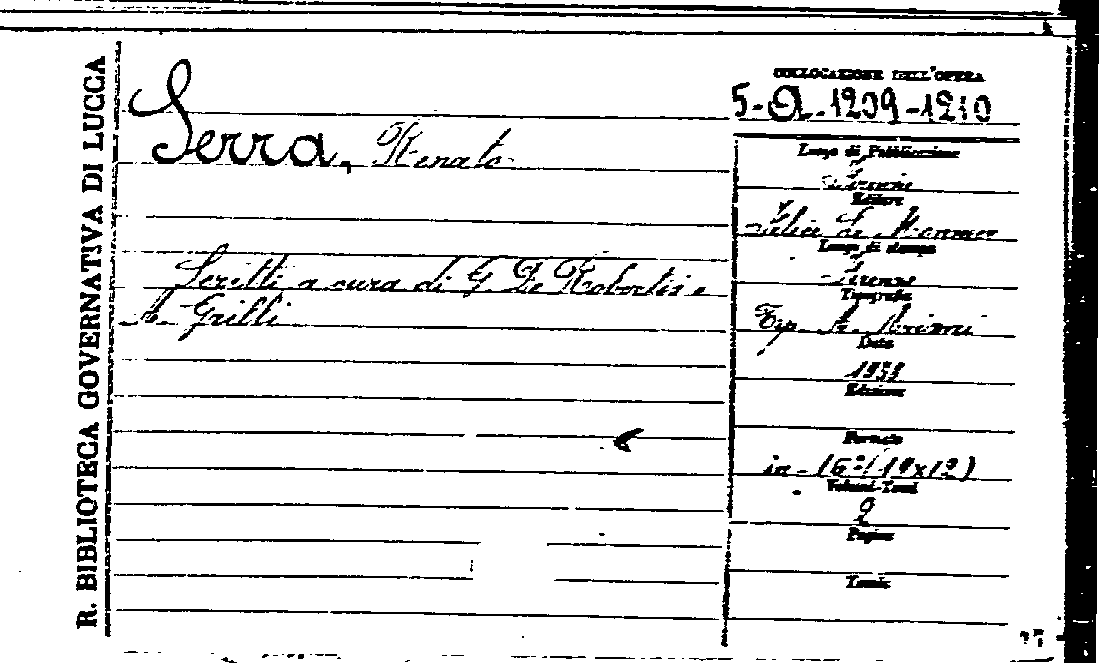 R. BIBLIOTECA GOVERNATIVA DI LUCCA
Serra, Renato
Scritti a cura di G. De Robertis e
A. Grilli
COLLOCAZIONE DELL'OPERA
5-A-1209-1210
Luogo di Pubblicazione
Firenze
Editore
Felice Le Monnier
Luogo di stampa
Firenze
Tipografia
Tip. A.
Data
Edizione
Formato
in-16º (19x12)
Volumi-Tomi
2
Pagine